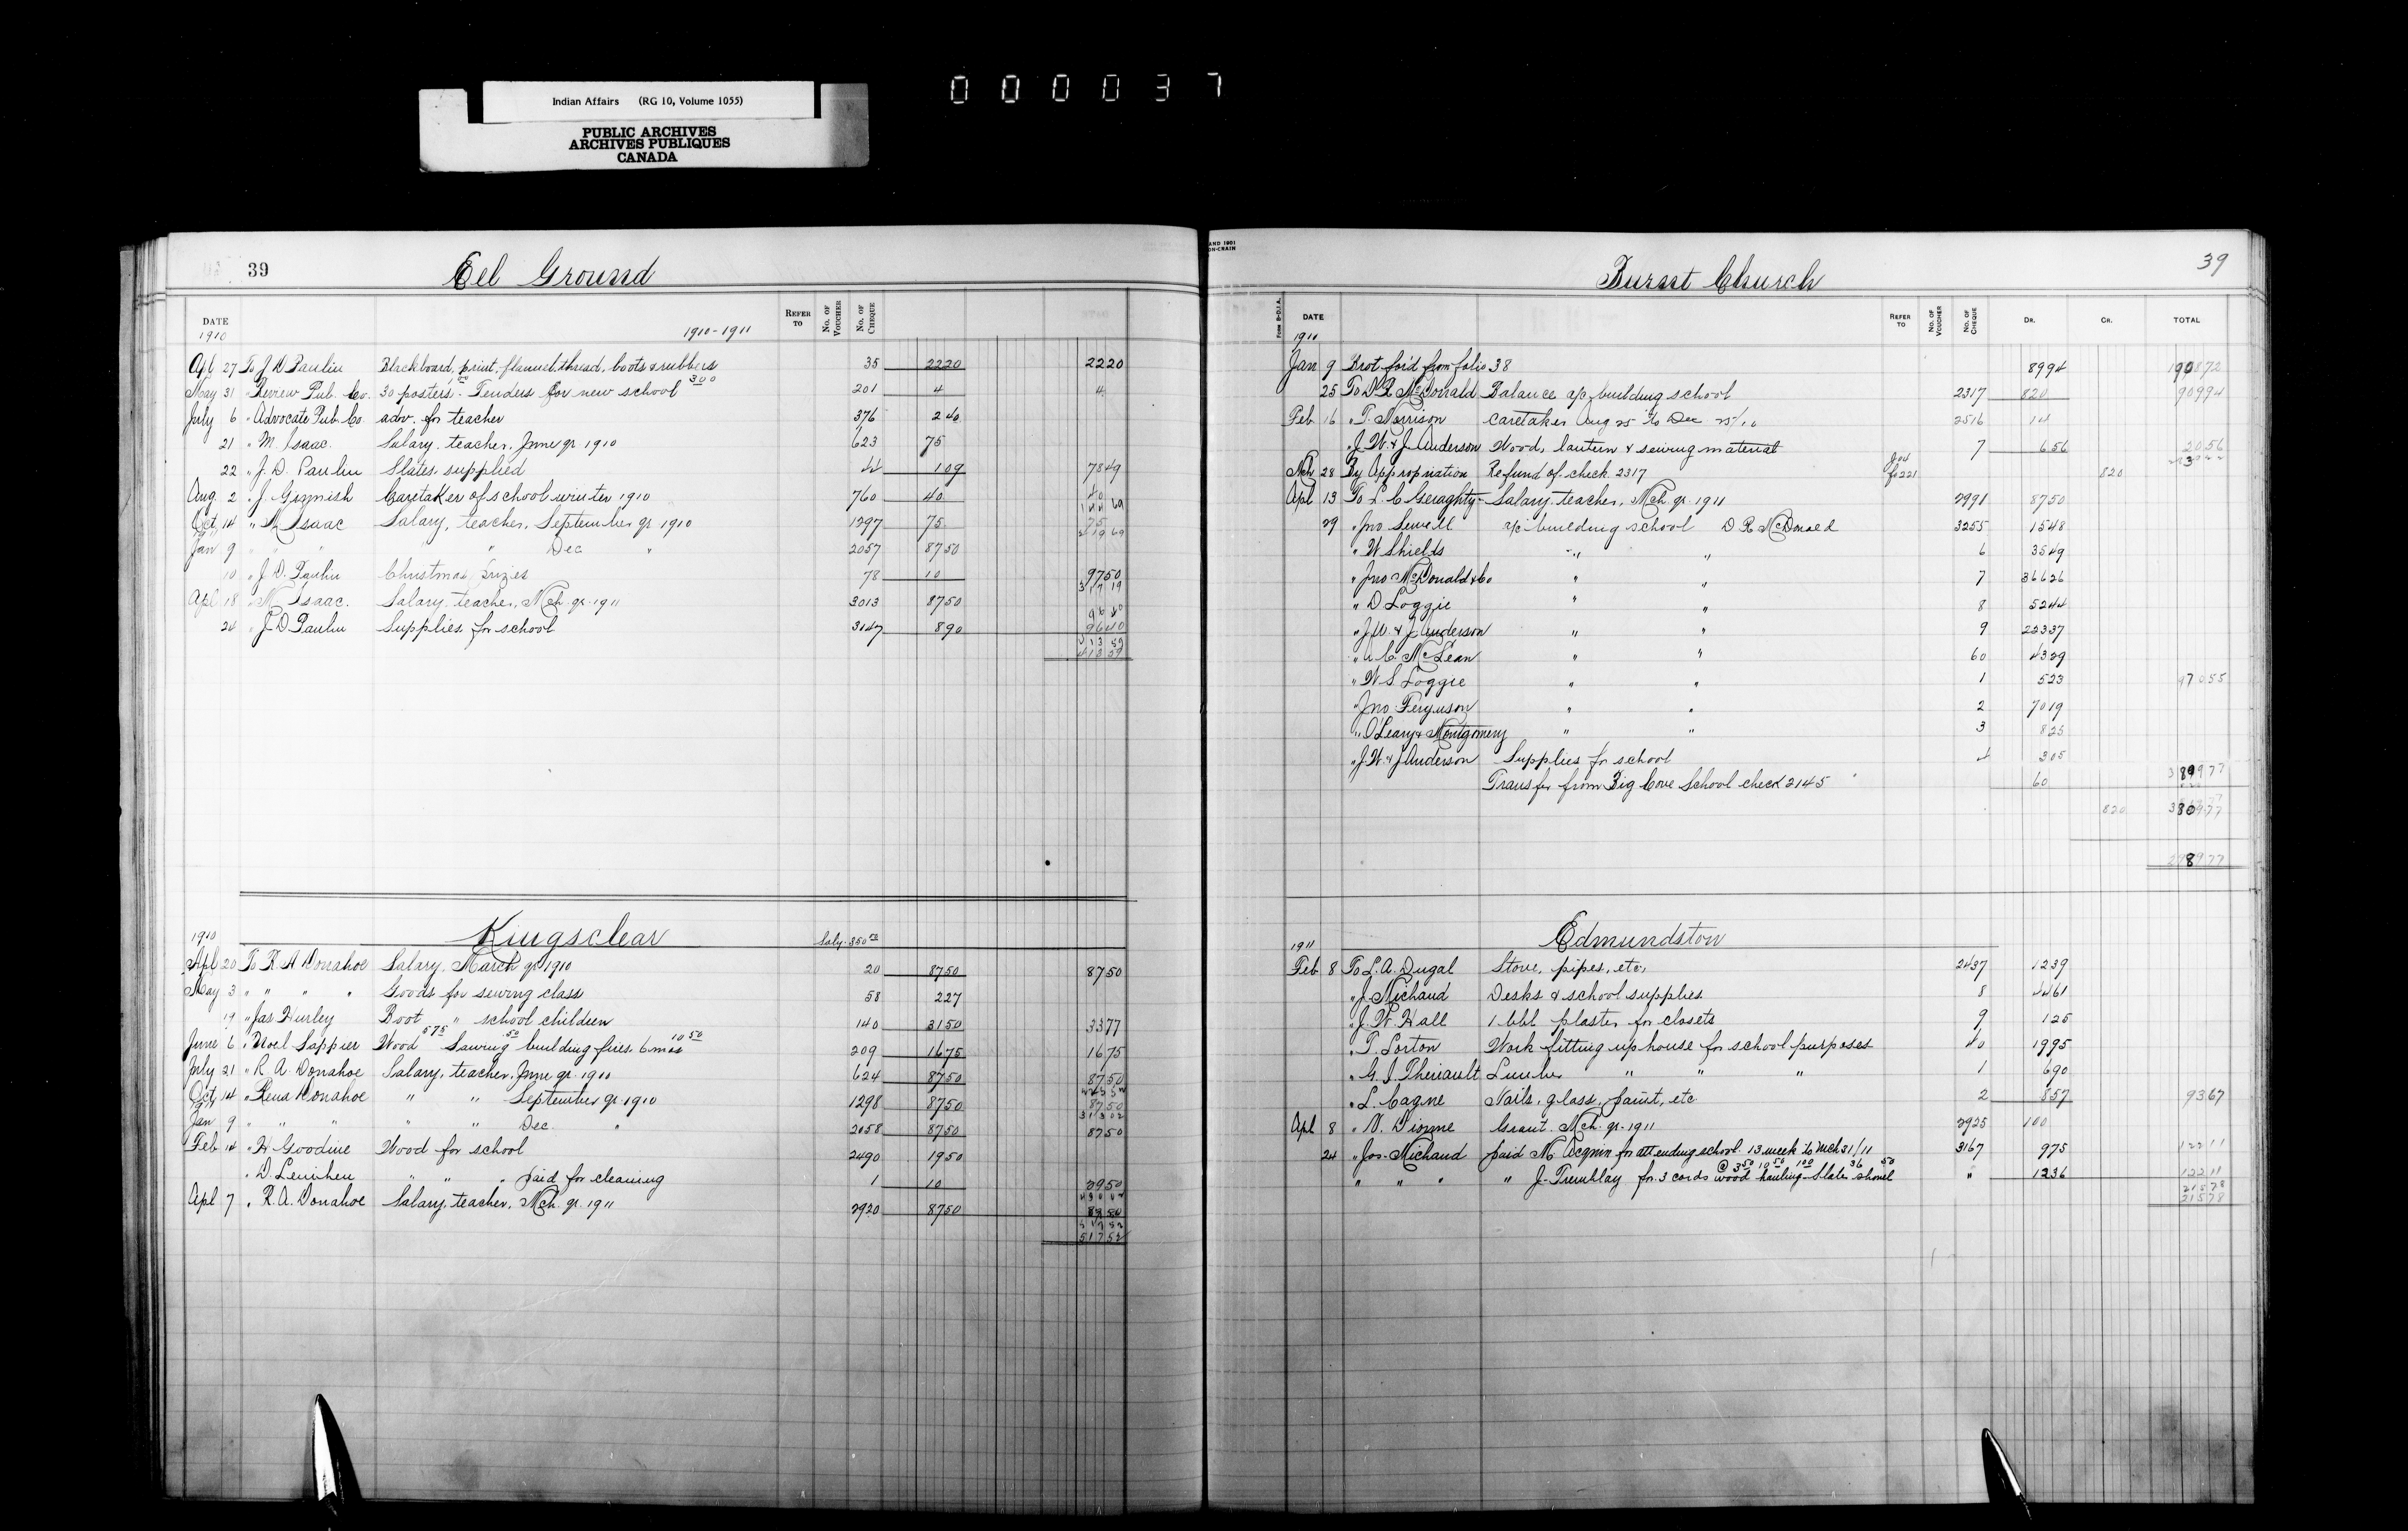 Indian Affairs (RG 10, Volume 1055)
PUBLIC ARCHIVES
ARCHIVES PUBLIQUES
CANADA
000037
39 Eel Ground
DATE 1910 1910-1911 REFER TO No. OF VOUCHER No. OF CHEQUE
Apl 27 To J D Paulin Blackboard, print, flannel, thread, boots & rubbers 35 2220 2220
May 31 " Review Pub. Co. 30 posters. Tenders for new school 300 201 4 4
July 6 " Advocate Pub Co adv. for teacher 376 240
21 " M. Isaac Salary, teacher, June qr 1910 623 75
22 " J. D. Paulin Slates supplied 44 109 7849
Aug. 2 " J. Ginnish Caretaker of school winter 1910 760 40 40
Oct 14 " M Isaac Salary, teacher, September qr 1910 1297 75 75
Jan 9 " " " " Dec " 2057 8750
10 " J. D. Paulin Christmas prizes 78 10 9750
Apl 18 " M Isaac. Salary, teacher, Mch qr 1911 3013 8750
24 " J D Paulin Supplies for school 3147 890 9640
41359
Kingsclear
1910 Saly. 350
Apl 20 To R A Donahoe Salary, March qr 1910 20 8750 8750
May 3 " " " " Goods for sewing class 58 227
19 " Jas Hurley Boot " school children 140 3150 3377
June 6 " Noel Sappier Wood 575 Sawing 50 building fires, 6 mos 1050 209 1675 1675
July 21 " R. A. Donahoe Salary, teacher, June qr. 1910 624 8750 8750
Oct 14 " Rena Donahoe " " September qr 1910 1298 8750 8750
Jan 9 " " " " Dec. " 2058 8750 8750
Feb 14 " H Goodine Wood for school 2490 1950
" D. Lenihen " " " paid for cleaning 1 10 2950
Apl 7 " R. A. Donahoe Salary, teacher, Mch qr. 1911 2920 8750 8750
51752
Burnt Church 39
DATE 1911 REFER TO No. OF VOUCHER No. OF CHEQUE DR. CR. TOTAL
Jan 9 Brot for'd from folio 38 8994 190872
25 To D. R. McDonald Balance a/c building school 2317 820 90994
Feb 16 " T. Morrison Caretaker Aug 25 to Dec 25/10 2516 14
" J. W. & J Anderson Wood, lantern & sewing material 7 656 2056
Mch 28 By Appropriation Refund of check 2317 fo 221 820
Apl 13 To L. C Geraghty Salary, teacher, Mch qr. 1911 2991 8750
29 " Jno Sewell a/c building school D R McDonald 3255 1548
" W Shields " " 6 3549
" Jno McDonald & Co " " 7 36626
" D Loggie " " 8 5244
" J. W. & J Anderson " " 9 22337
" A. C. McLean " " 60 4329
" W S. Loggie " " 1 523 97055
" Jno Ferguson " " 2 7019
" O'Leary & Montgomery " " 3 825
" J. W. & J Anderson Supplies for school 4 305
Transfer from Big Cove School check 2145 60 389977
820 380977
378977
Edmundston
1911
Feb 8 To L. A. Dugal Stove, pipes, etc. 2437 1239
" J. Michaud Desks & school supplies 8 4461
" J. W. Hall 1 bbl plaster for closets 9 125
" T. Lorton Work fitting up house for school purposes 40 1995
" G. J. Theriault Lumber " " " 1 690
" L. Cagne Nails, glass, paint, etc 2 857 9367
Apl 8 " N. Dionne Grant. Mch. qr. 1911 2925 100
24 " Jos. Michaud paid M for attending school. 13 week to Mch 31/11 3167 975 12211
" " " " J. Tremblay for 3 cords wood @ 350 1050 hauling 100 Slates 36 shovel 50 " 1236 12211
21578
21578